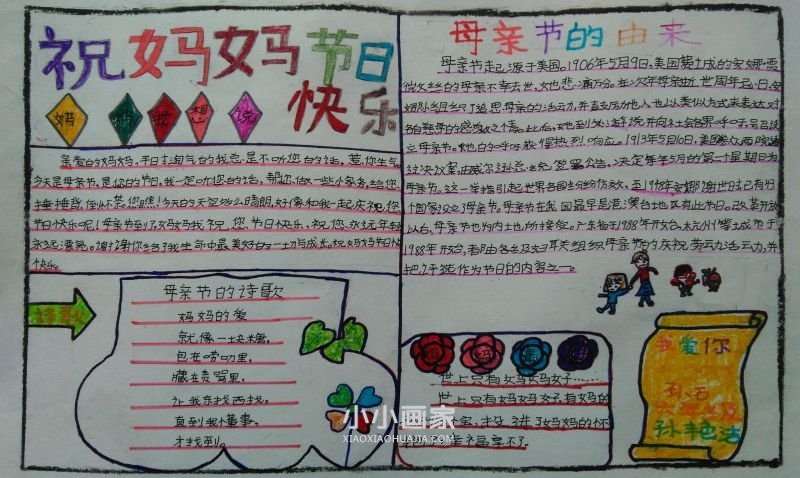 祝妈妈节日
快乐
妈 妈 我 想 说
亲爱的妈妈,平日太淘气的我总是不听您的话,惹您生气
今天是母亲节,是您的节日,我一定听您的话,帮您做一些小家务,给您
捶捶背,
节日快乐呢!母亲节到了,妈妈我祝 您、节日快乐、祝 您、永远年轻
永远漂亮。谢谢你给了我生命中最美好的一切与成长。祝妈妈节日
快乐。
诗歌
母亲节的诗歌
妈妈的爱
就像一块糖,
包在唠叨里,
藏在责骂里,
让我东找西找,
直到我懂事,
才找到。
母亲节的由来
母亲节起源于美国。1906年5月9日,美国费城的安娜·贾
维丝的母亲不幸去世,她悲痛万分。在次年母亲逝世周年忌日,安
娜组织了追思母亲的活动,并鼓励他人也以类似方式来表达对
各自慈母的感激之情。此后,她到处游说并向社会各界呼吁,号召设
立母亲节。她的呼吁获得热烈响应。1913年5月10日,美国参众两院通
过决议案,由威尔逊总统签署公告,决定每年5月的第一个星期日为
母亲节。这一举措引起世界各国纷纷仿效,至1948年安娜谢世时,已有43
个国家设立母亲节。母亲节在我国最早是在港澳台地区有此节日。改革开放
以后,母亲节也为内地也所接受。广东省于1988年开始,杭州等城市于
1988年开始,都由各级妇联组织母亲节的庆祝活动,并
把评选作为节日的内容之一。
世上只有妈妈好……
世上只有妈妈好有妈的
宝,投进了妈妈的怀
幸福享不了
我爱你
孙沾
六年级
小小画家
XIAOXIAOHUAJIA.COM